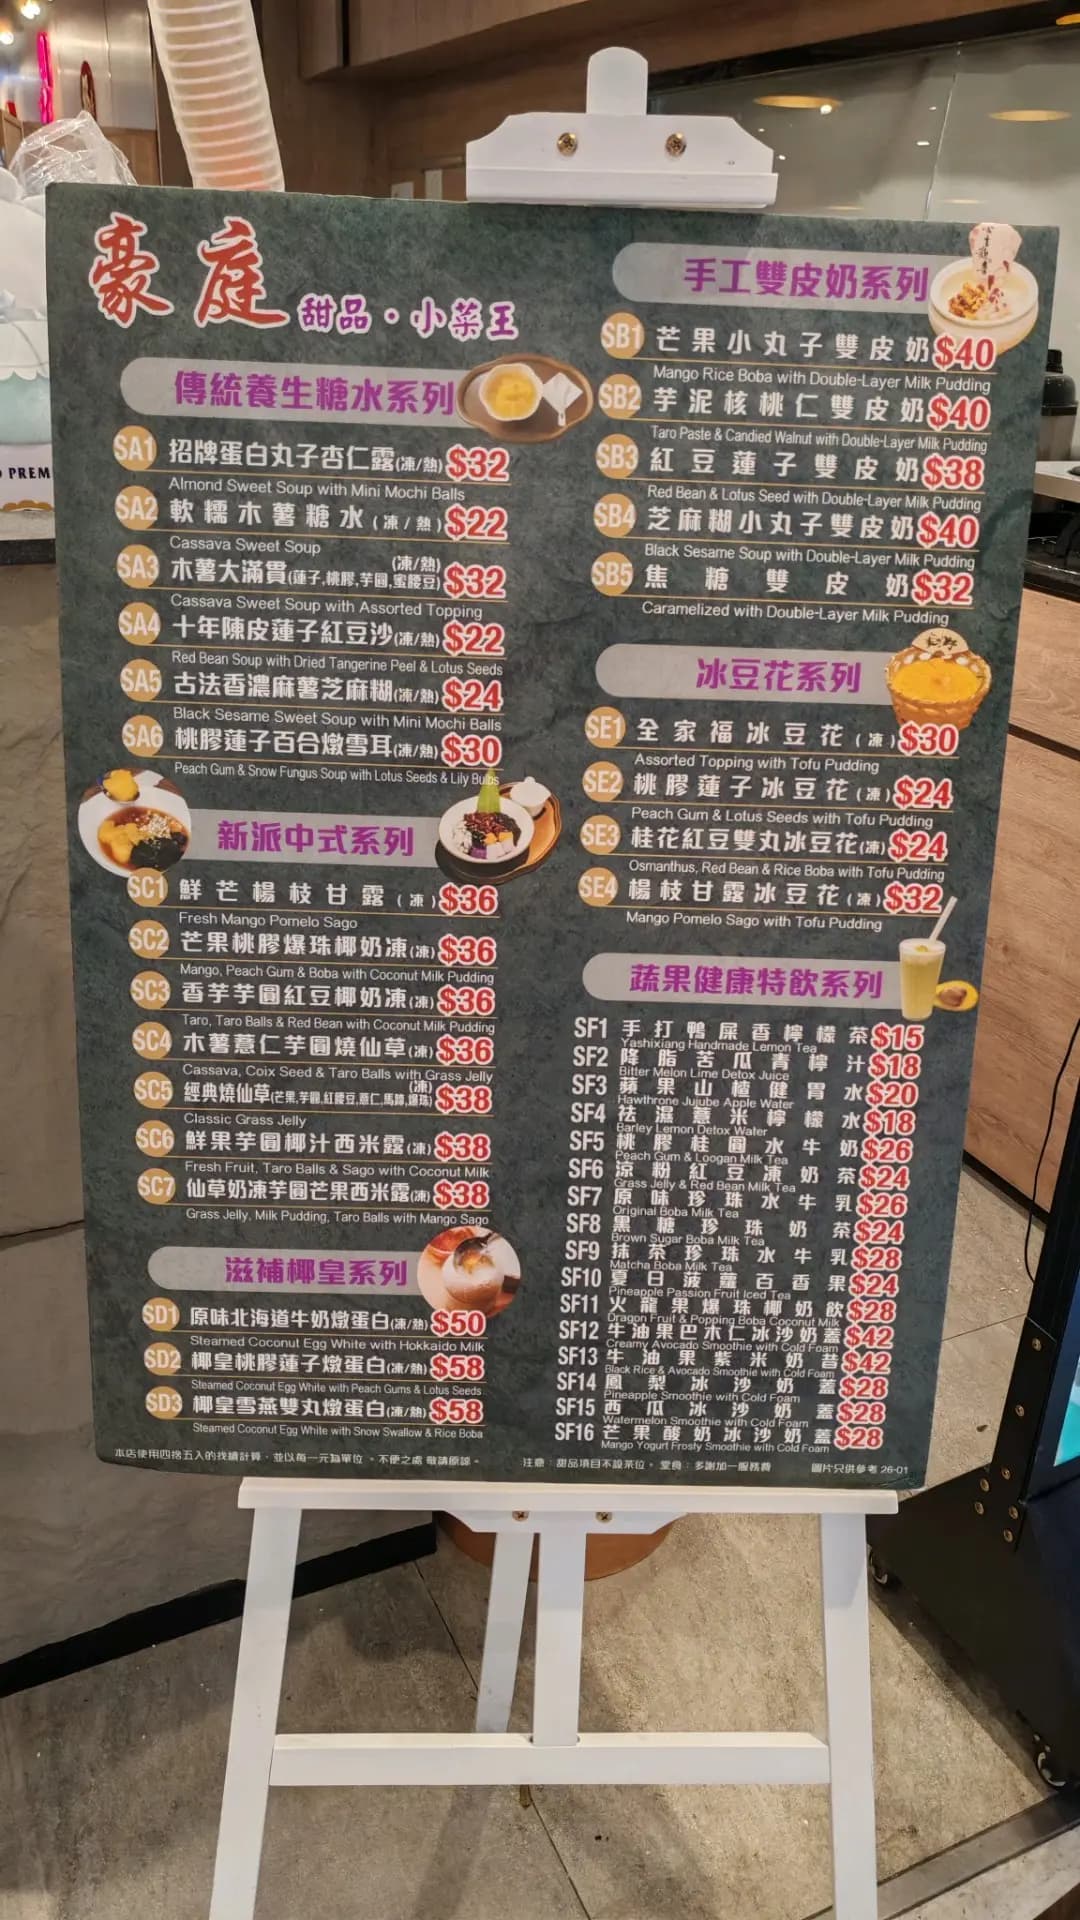 豪庭 甜品・小菜王
傳統養生糖水系列
SA1 招牌蛋白丸子杏仁露(凍/熱) $32
Almond Sweet Soup with Mini Mochi Balls
SA2 軟糯木薯糖水(凍/熱) $22
Cassava Sweet Soup
SA3 木薯大滿貫(蓮子,桃膠,芋圓,蜜腰豆) (凍/熱) $32
Cassava Sweet Soup with Assorted Topping
SA4 十年陳皮蓮子紅豆沙(凍/熱) $22
Red Bean Soup with Dried Tangerine Peel & Lotus Seeds
SA5 古法香濃麻薯芝麻糊(凍/熱) $24
Black Sesame Sweet Soup with Mini Mochi Balls
SA6 桃膠蓮子百合燉雪耳(凍/熱) $30
Peach Gum & Snow Fungus Soup with Lotus Seeds & Lily Bulbs
新派中式系列
SC1 鮮芒楊枝甘露(凍) $36
Fresh Mango Pomelo Sago
SC2 芒果桃膠爆珠椰奶凍(凍) $36
Mango, Peach Gum & Boba with Coconut Milk Pudding
SC3 香芋芋圓紅豆椰奶凍(凍) $36
Taro, Taro Balls & Red Bean with Coconut Milk Pudding
SC4 木薯薏仁芋圓燒仙草(凍) $36
Cassava, Coix Seed & Taro Balls with Grass Jelly
SC5 經典燒仙草(芒果,芋圓,紅腰豆,薏仁,馬蹄,爆珠) (凍) $38
Classic Grass Jelly
SC6 鮮果芋圓椰汁西米露(凍) $38
Fresh Fruit, Taro Balls & Sago with Coconut Milk
SC7 仙草奶凍芋圓芒果西米露(凍) $38
Grass Jelly, Milk Pudding, Taro Balls with Mango Sago
滋補椰皇系列
SD1 原味北海道牛奶燉蛋白(凍/熱) $50
Steamed Coconut Egg White with Hokkaido Milk
SD2 椰皇桃膠蓮子燉蛋白(凍/熱) $58
Steamed Coconut Egg White with Peach Gums & Lotus Seeds
SD3 椰皇雪燕雙丸燉蛋白(凍/熱) $58
Steamed Coconut Egg White with Snow Swallow & Rice Boba
手工雙皮奶系列
SB1 芒果小丸子雙皮奶 $40
Mango Rice Boba with Double-Layer Milk Pudding
SB2 芋泥核桃仁雙皮奶 $40
Taro Paste & Candied Walnut with Double-Layer Milk Pudding
SB3 紅豆蓮子雙皮奶 $38
Red Bean & Lotus Seed with Double-Layer Milk Pudding
SB4 芝麻糊小丸子雙皮奶 $40
Black Sesame Soup with Double-Layer Milk Pudding
SB5 焦糖雙皮奶 $32
Caramelized with Double-Layer Milk Pudding
冰豆花系列
SE1 全家福冰豆花(凍) $30
Assorted Topping with Tofu Pudding
SE2 桃膠蓮子冰豆花(凍) $24
Peach Gum & Lotus Seeds with Tofu Pudding
SE3 桂花紅豆雙丸冰豆花(凍) $24
Osmanthus, Red Bean & Rice Boba with Tofu Pudding
SE4 楊枝甘露冰豆花(凍) $32
Mango Pomelo Sago with Tofu Pudding
蔬果健康特飲系列
SF1 手打鴨屎香檸檬茶 $15
Yashixiang Handmade Lemon Tea
SF2 降脂苦瓜青檸汁 $18
Bitter Melon Lime Detox Juice
SF3 蘋果山楂健胃水 $20
Hawthrone Jujube Apple Water
SF4 祛濕薏米檸檬水 $18
Barley Lemon Detox Water
SF5 桃膠桂圓水牛奶 $26
Peach Gum & Loogan Milk Tea
SF6 涼粉紅豆凍奶茶 $24
Grass Jelly & Red Bean Milk Tea
SF7 原味珍珠水牛乳 $26
Original Boba Milk Tea
SF8 黑糖珍珠奶茶 $24
Brown Sugar Boba Milk Tea
SF9 抹茶珍珠水牛乳 $28
Matcha Boba Milk Tea
SF10 夏日菠蘿百香果 $24
Pineapple Passion Fruit Iced Tea
SF11 火龍果爆珠椰奶飲 $28
Dragon Fruit & Popping Boba Coconut Milk
SF12 牛油果巴木仁冰沙奶蓋 $42
Creamy Avocado Smoothie with Cold Foam
SF13 牛油果紫米奶昔 $42
Black Rice & Avocado Smoothie with Cold Foam
SF14 鳳梨冰沙奶蓋 $28
Pineapple Smoothie with Cold Foam
SF15 西瓜冰沙奶蓋 $28
Watermelon Smoothie with Cold Foam
SF16 芒果酸奶冰沙奶蓋 $28
Mango Yogurt Frosty Smoothie with Cold Foam
本店使用四捨五入的找續計算,並以每一元為單位。不便之處 敬請原諒。
注意:甜品項目不設茶位。堂食:多謝加一服務費
圖片只供參考 26-01
PREM